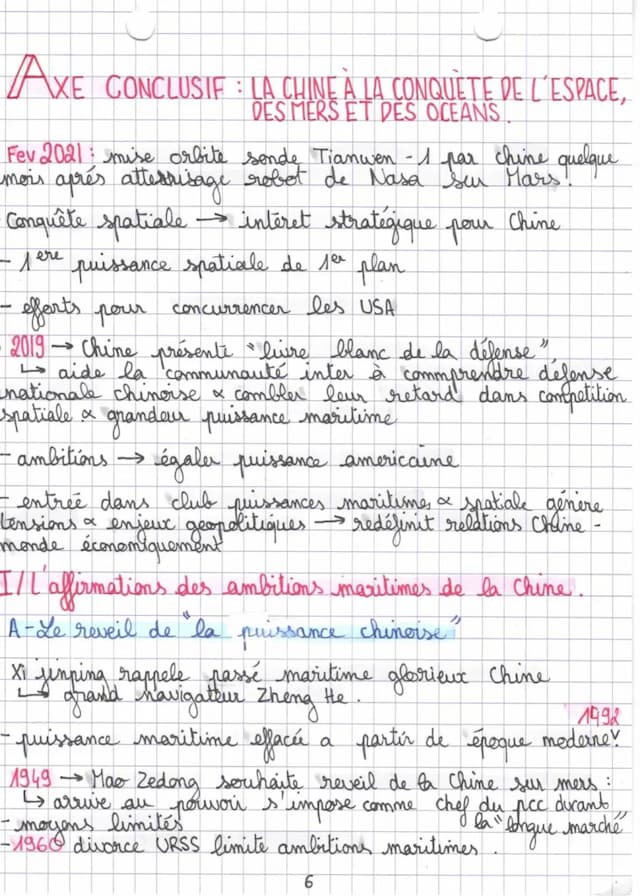 AXE CONCLUSIF : LA CHINE À LA CONQUÈTE DE L'ESPACE,
DES MERS ET DES OCEANS.
Fev 2021 : mise orbite sonde Tianwen-1 par chine quelque
mois aprés atterrisage robot de Nasa sur Mars.
Conquête spatiale → intéret stratégique pour Chine
- 1ere puissance spatiale de 1er plan
- efforts pour concurrencer les USA
2019 → Chine présente "livre blanc de la défense"
↳ aide la communauté inter à commprendre défense
nationale chinoise & combler leur retard dans compétition
spatiale & grandeur puissance maritime
- ambitions → égaler puissance americaine
- entreé dans club puissances maritimes & spatiale génère
tensions & enjeux geopolitiques → redéfinit relations Chine -
monde économiquement
I/ L'affirmations des ambitions maritimes de la Chine.
A-Le reveil de "la puissance chinoise"
Xi jinping rappele passé maritime glorieux Chine
↳ grand navigateur Zheng He.
1492
- puissance maritime effacée a partir de époque moderne.
1949 → Mao Zedong souhaite reveil de la Chine sur mers :
↳ arrive au pouvoir s'impose comme chef du pcc durant
la "longue marche"
- moyens limités
- 1960 divorce URSS limite ambitions maritimes.
6